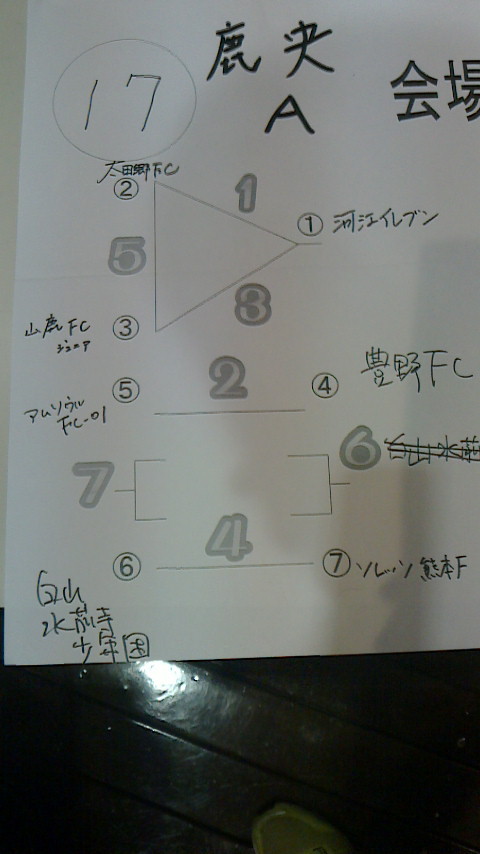 17
鹿央
A
会場
太田郷FC
②
1
① 河江イレブン
5
3
山鹿FC
ジュニア
③
⑤
2
④
豊野FC
アムソウル
FC-01
6
白山水前
7
4
⑥
⑦ ソレッソ熊本F
白山
水前寺
少年団